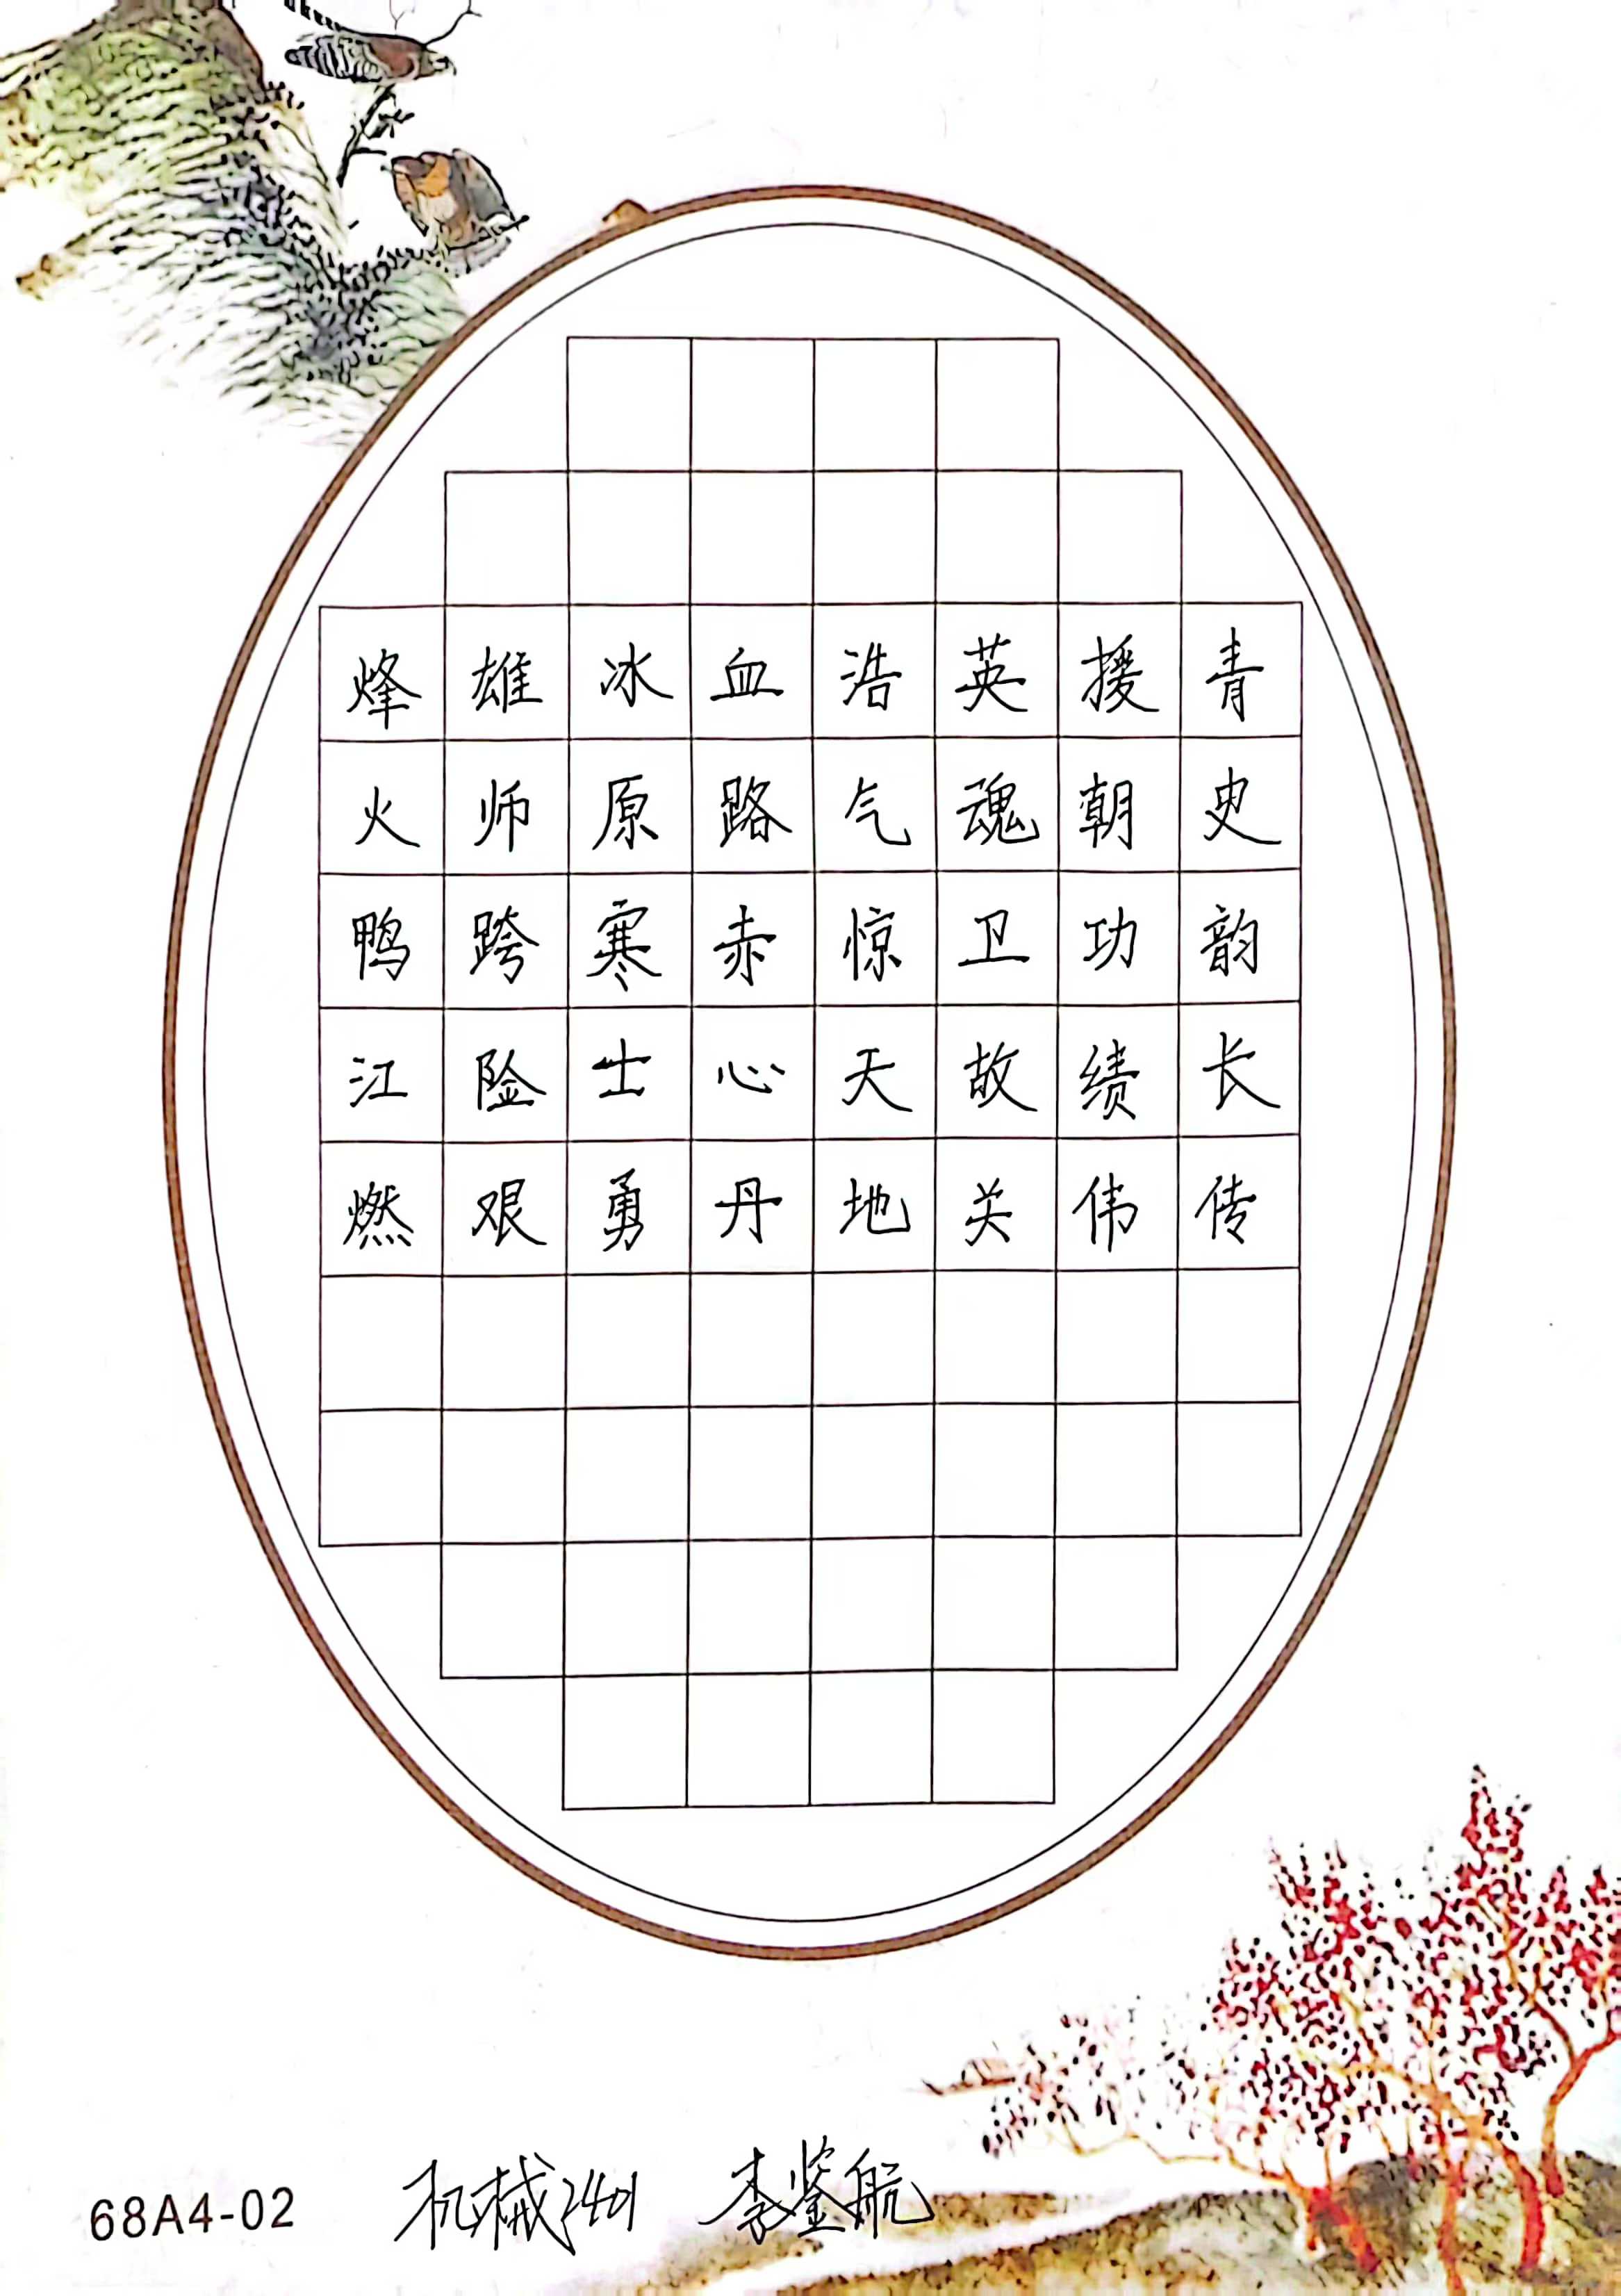 烽火鸭江燃
雄师跨险艰
冰原寒士勇
血路赤心丹
浩气惊天地
英魂卫故关
援朝功绩伟
青史韵长传
68A4-02 机械2401 李鉴航